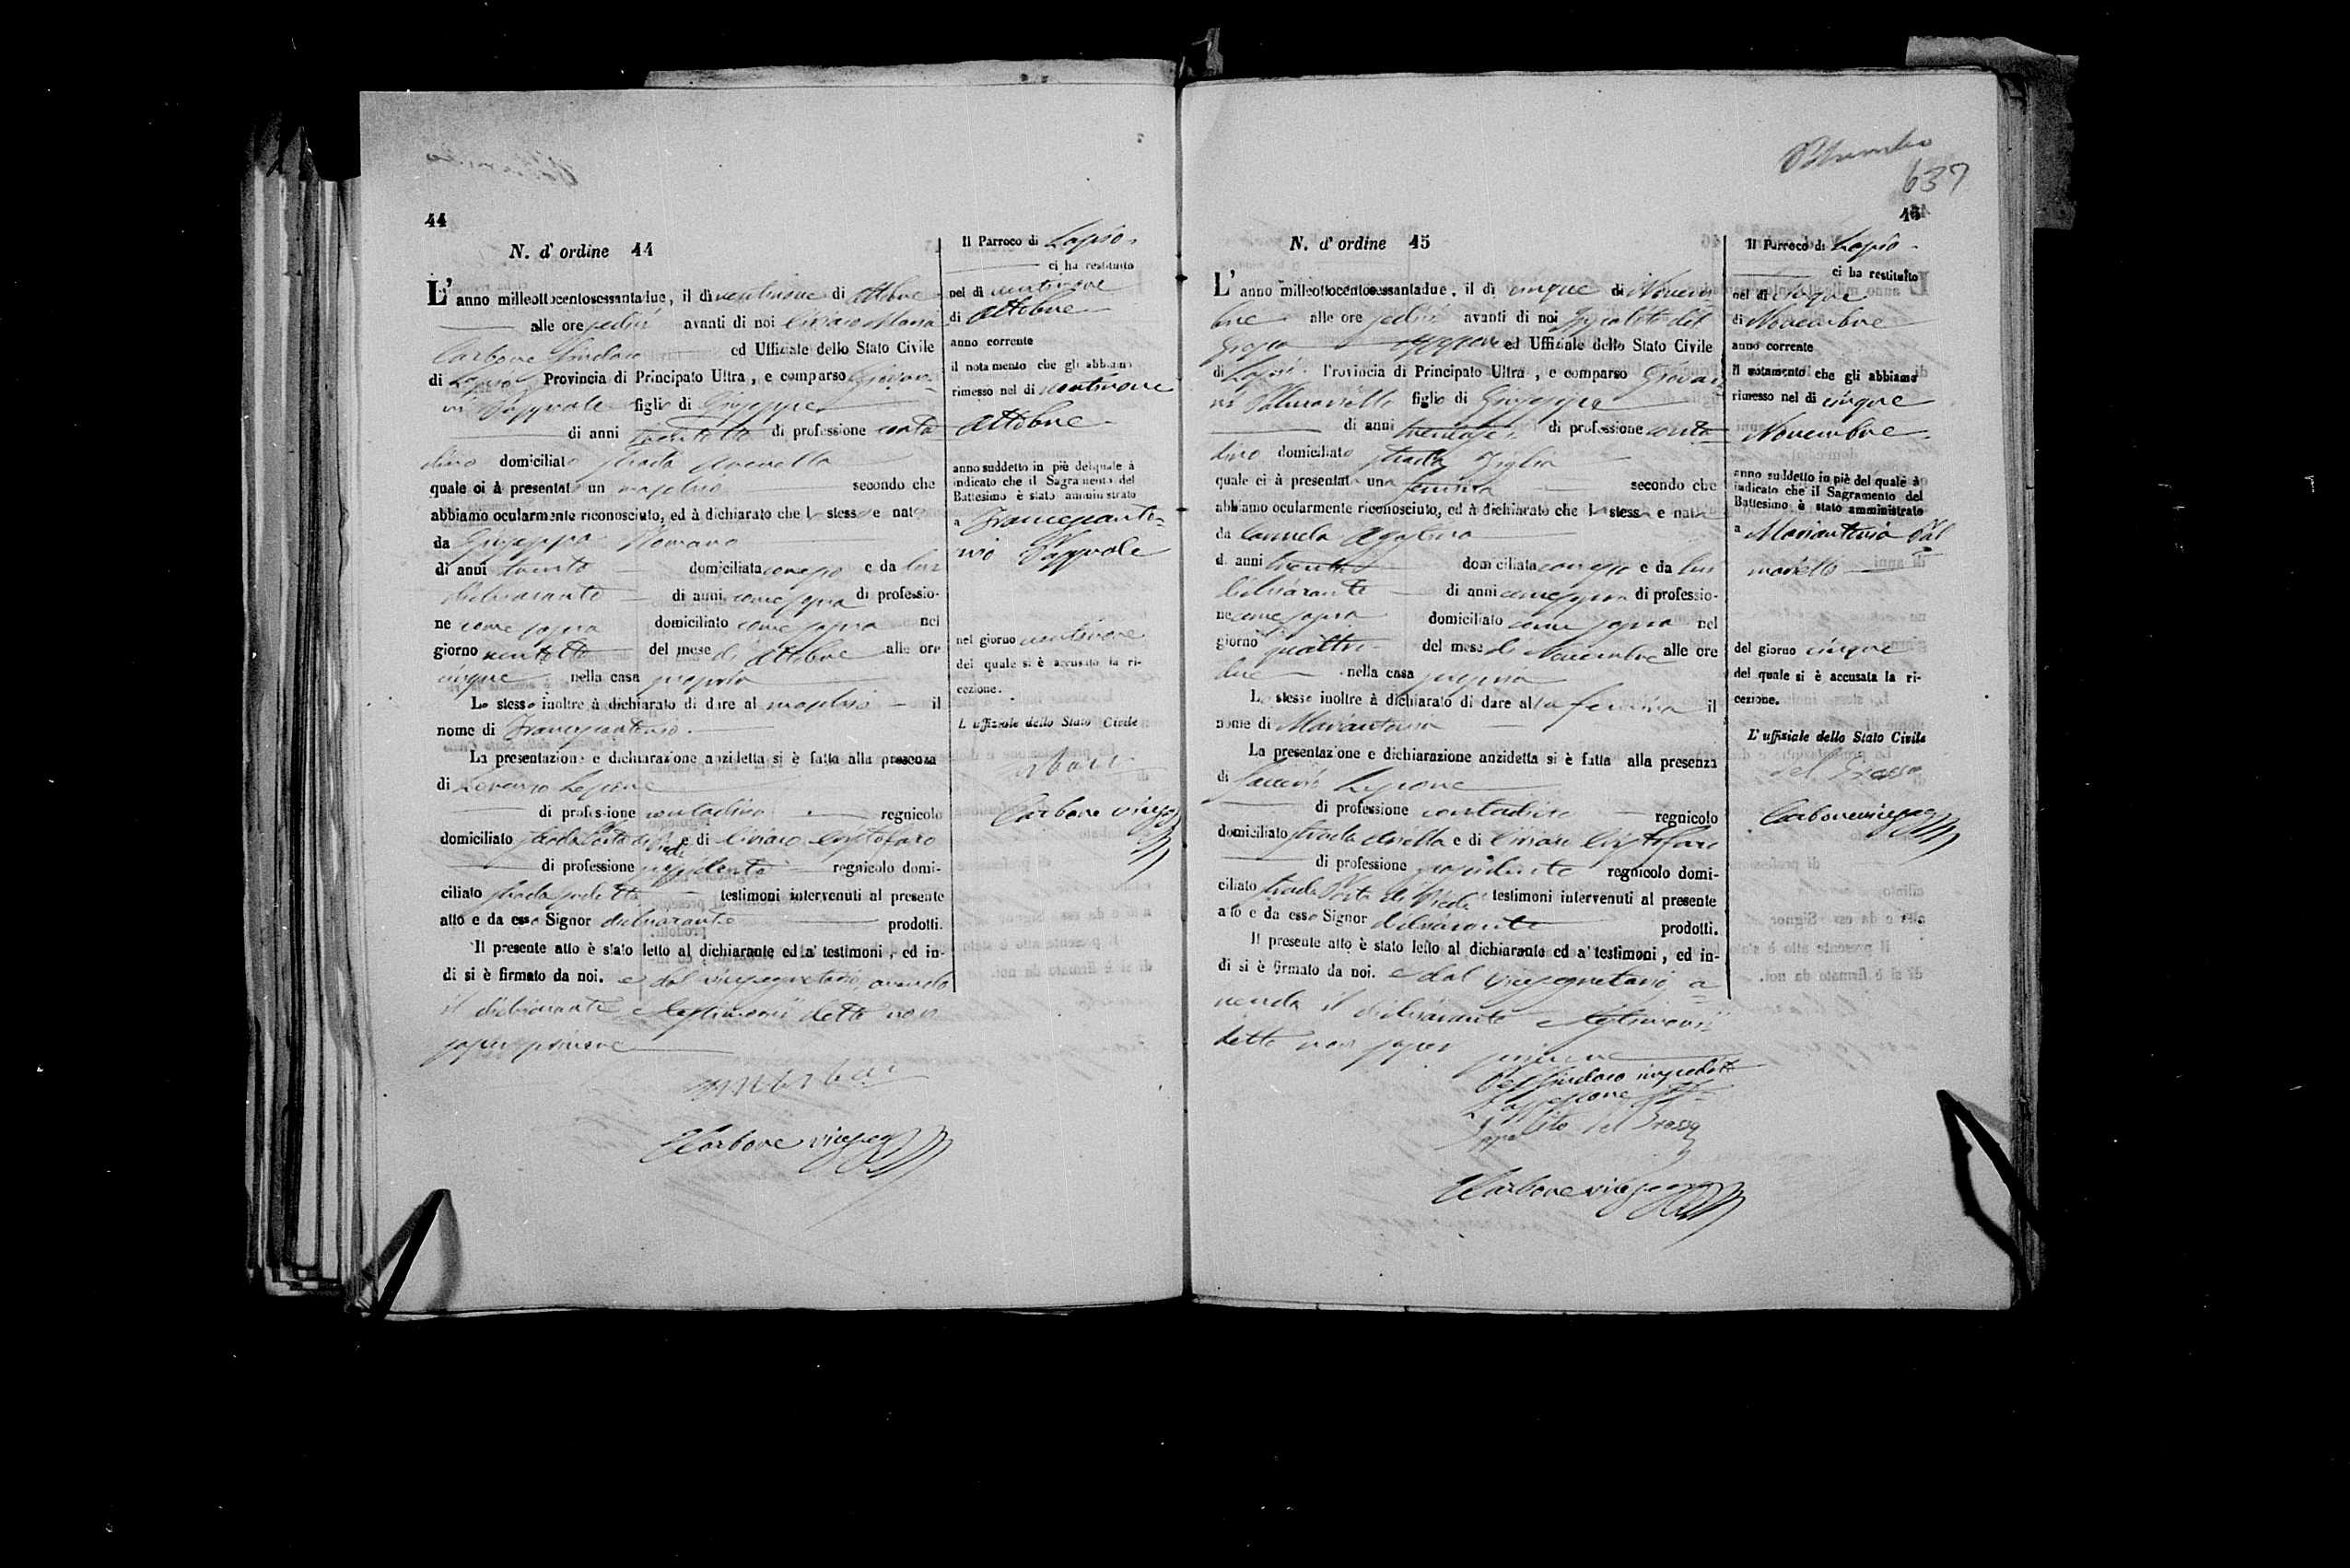 44
N. d' ordine 44
L' anno milleottocentosessantadue, il dì ventinove di Ottobre
alle ore sedici avanti di noi Ciriaco Maria
Carbone Sindaco ed Uffiziale dello Stato Civile
di Lapio Provincia di Principato Ultra, e comparso Giovan=
ni figlio di Giuseppe
di anni trentotto di professione conta
dino domiciliato strada
quale ci à presentato un maschio secondo che
abbiamo ocularmente riconosciuto, ed à dichiarato che lo stesso e nato
da Giuseppa Romano
di anni trenta domiciliata e da lui
dichiarante di anni come sopra di professio-
ne come sopra domiciliato come sopra nel
giorno ventotto del mese di Ottobre alle ore
cinque nella casa propria
Lo stesso inoltre à dichiarato di dare al maschio il
nome di Francescantonio.
La presentazione e dichiarazione anzidetta si è fatta alla presenza
di
di professione contadino regnicolo
domiciliato strada Porta di e di Ciriaco
di professione regnicolo domi-
ciliato strada testimoni intervenuti al presente
atto e da esso Signor dichiarante prodotti.
Il presente atto è stato letto al dichiarante ed a' testimoni, ed in-
di si è firmato da noi. e dal vicesegretario avendo
il dichiarante e testimonii detto non
saper scrivere
Carbone viceseg
Il Parroco di Lapio
ci ha restituito
nel dì ventinove
di Ottobre
anno corrente
il notamento che gli abbiamo
rimesso nel dì ventinove
Ottobre
anno suddetto in piè del quale à
indicato che il Sagramento del
Battesimo è stato amministrato
a Francescanto=
nio
nel giorno ventinove
del quale si è accusata la ri-
cezione.
L' uffiziale dello Stato Civile
Carbone viceseg
637
45
N. d' ordine 45
L' anno milleottocentosessantadue, il dì cinque di Novem
bre alle ore sedici avanti di noi Ippolito del
Grosso ed Uffiziale dello Stato Civile
di Lapio Provincia di Principato Ultra, e comparso Giovan
ni figlio di Giuseppe
di anni trentasei di professione conta=
dino domiciliato strada
quale ci à presentata una femina secondo che
abbiamo ocularmente riconosciuto, ed à dichiarato che la stessa e nata
da Carmela
di anni trenta domiciliata e da lui
dichiarante di anni come sopra di professio-
ne come sopra domiciliato come sopra nel
giorno quattro del mese di Novembre alle ore
due nella casa propria
Lo stesso inoltre à dichiarato di dare alla femina il
nome di Mariantonia
La presentazione e dichiarazione anzidetta si è fatta alla presenza
di
di professione contadino regnicolo
domiciliato strada e di Ciriaco
di professione regnicolo domi-
ciliato strada Porta di testimoni intervenuti al presente
atto e da esso Signor dichiarante prodotti.
Il presente atto è stato letto al dichiarante ed a' testimoni, ed in-
di si è firmato da noi. e dal vicesegretario a=
vendo il dichiarante e testimonii
detto non saper scrivere
Pel Sindaco impedito
Ippolito del Grosso
Carbone viceseg
Il Parroco di Lapio
ci ha restituito
nel dì cinque
di Novembre
anno corrente
il notamento che gli abbiamo
rimesso nel dì cinque
Novembre
anno suddetto in piè del quale à
indicato che il Sagramento del
Battesimo è stato amministrato
a Mariantonia
del giorno cinque
del quale si è accusata la ri-
cezione.
L' uffiziale dello Stato Civile
del Grosso
Carbone viceseg